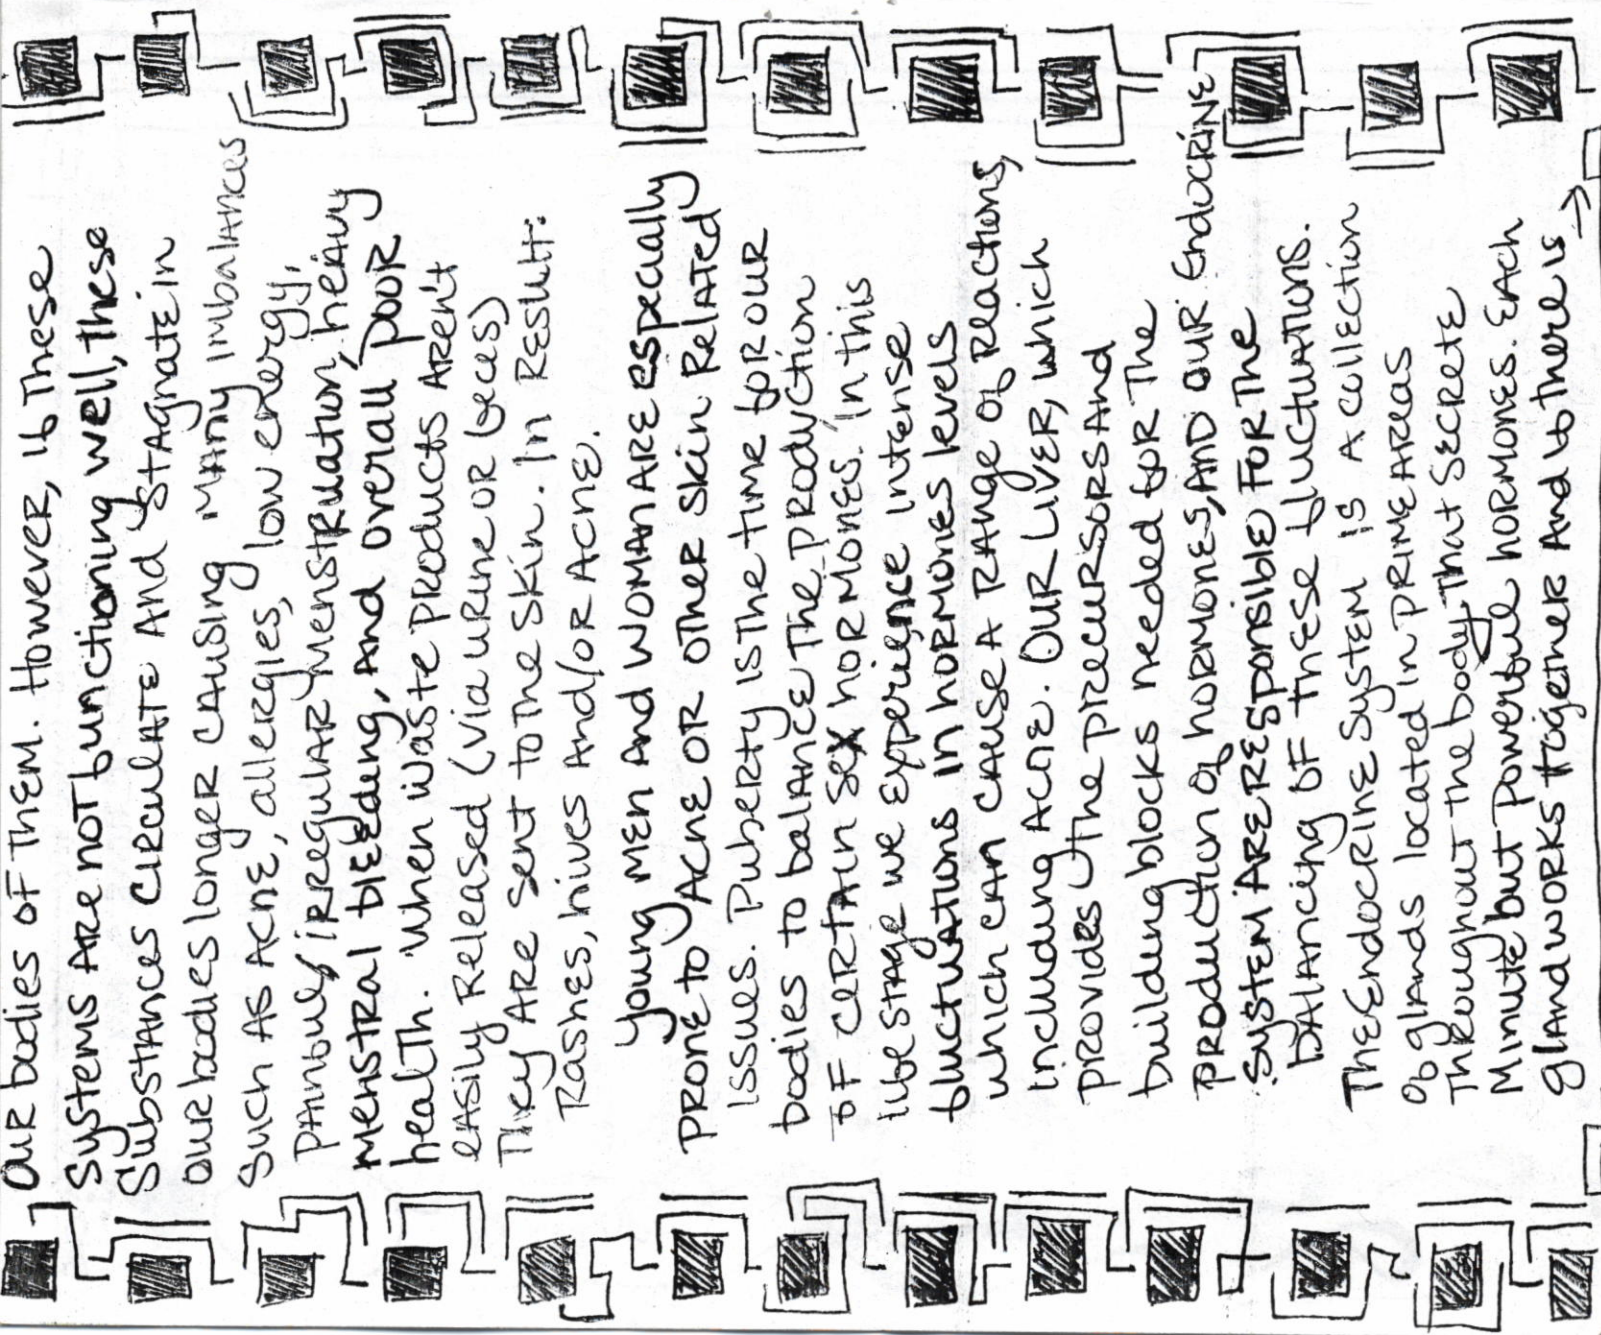 our bodies of them. However, if these
systems are not functioning well, these
substances circulate and stagnate in
our bodies longer causing many imbalances
such as acne, allergies, low energy,
painful, irregular menstruation, heavy
menstral bleeding, and overall poor
health. When waste products aren't
easily released (via urine or feces)
they are sent to the skin. In result:
Rashes, hives and/or acne.
Young men and woman are especially
prone to acne or other skin related
issues. Puberty is the time for our
bodies to balance the production
of certain sex hormones. In this
life stage we experience intense
fluctuations in hormones levels
which can cause a range of reactions,
including acne. Our liver, which
provides the precursors and
building blocks needed for the
production of hormones, and our endocrine
system are responsible for the
balancing of these fluctuations.
The endocrine system is a collection
of glands located in prime areas
throughout the body that secrete
minute but powerful hormones. Each
gland works together and if there is →